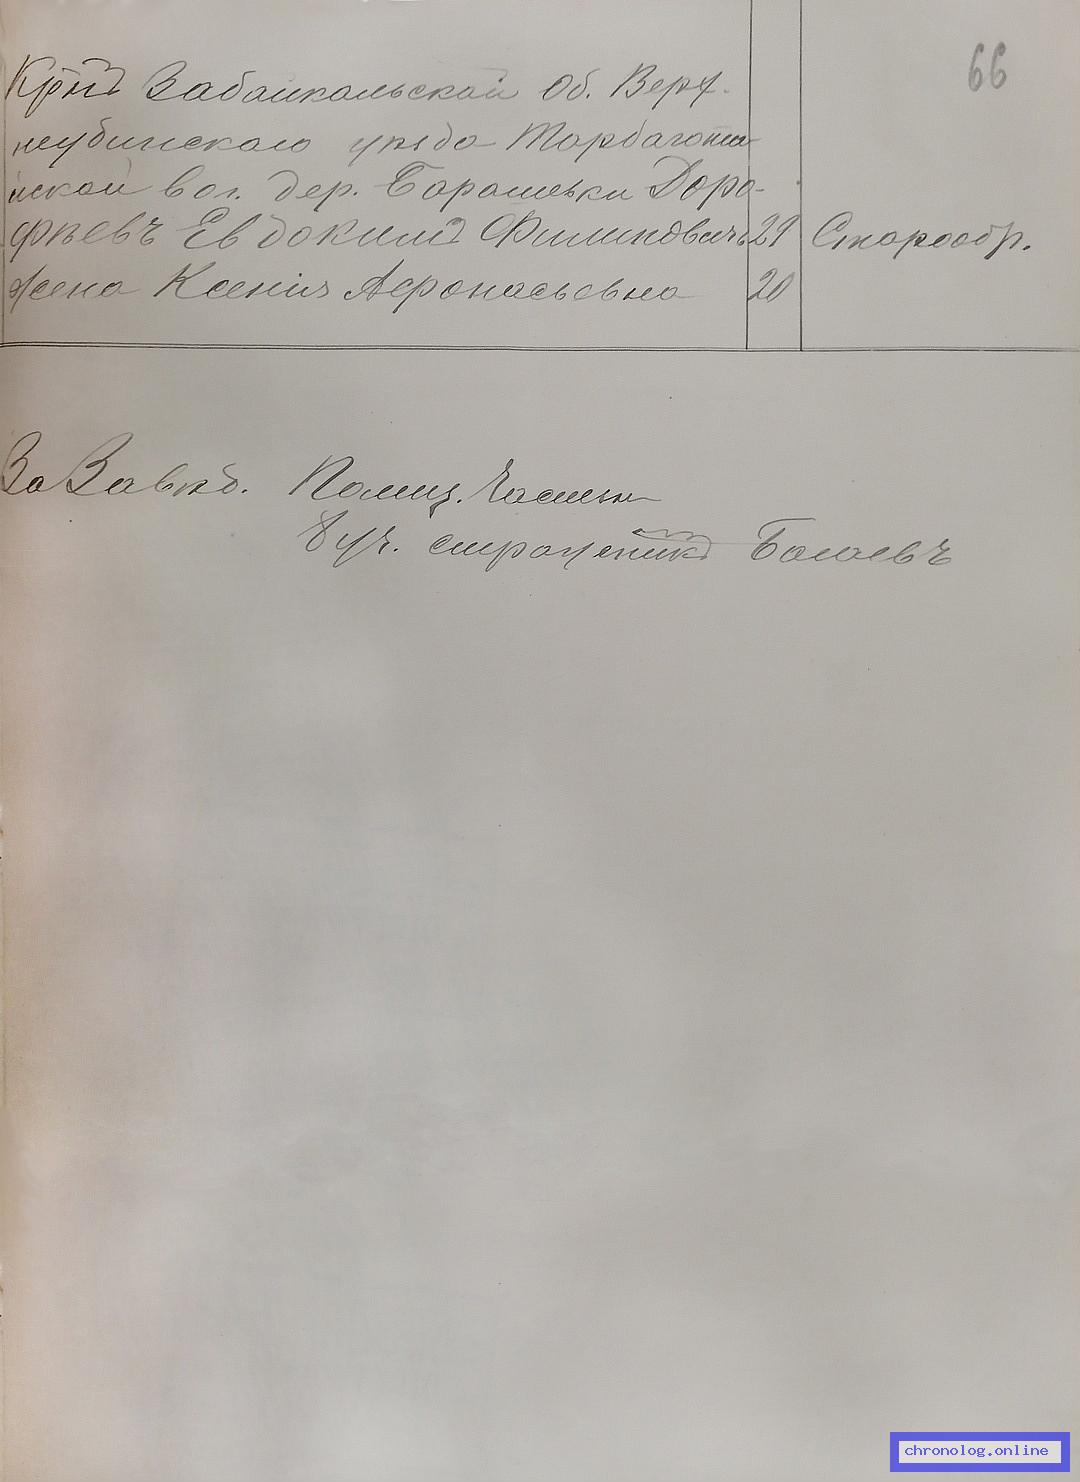 66
Крнъ Забайкальской Об. Верх-
неудинскаго уѣзда Тарбагатай-
ской вол. дер. Барашевки Доро-
фѣевъ Евдокимъ Филиповичъ 21 Старообр.
Жена Ксенія Афонасьевна 20
За Завѣд. Полиц. Частью
уч. стражникъ Богаевъ
chronolog.online